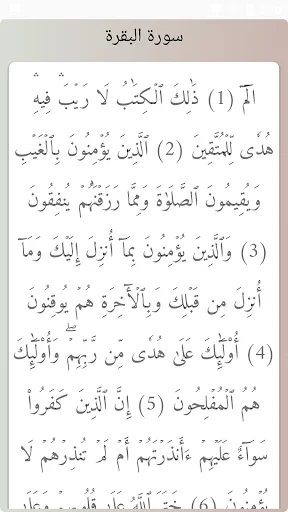 سورة البقرة
الٓمٓ (1) ذَٰلِكَ ٱلْكِتَٰبُ لَا رَيْبَ ۛ فِيهِ ۛ
هُدًى لِّلْمُتَّقِينَ (2) ٱلَّذِينَ يُؤْمِنُونَ بِٱلْغَيْبِ
وَيُقِيمُونَ ٱلصَّلَوٰةَ وَمِمَّا رَزَقْنَٰهُمْ يُنفِقُونَ
(3) وَٱلَّذِينَ يُؤْمِنُونَ بِمَآ أُنزِلَ إِلَيْكَ وَمَآ
أُنزِلَ مِن قَبْلِكَ وَبِٱلْءَاخِرَةِ هُمْ يُوقِنُونَ
(4) أُو۟لَٰٓئِكَ عَلَىٰ هُدًى مِّن رَّبِّهِمْ ۖ وَأُو۟لَٰٓئِكَ
هُمُ ٱلْمُفْلِحُونَ (5) إِنَّ ٱلَّذِينَ كَفَرُوا۟
سَوَآءٌ عَلَيْهِمْ ءَأَنذَرْتَهُمْ أَمْ لَمْ تُنذِرْهُمْ لَا
يُؤْمِنُونَ (6) خَتَمَ ٱللَّهُ عَلَىٰ قُلُوبِهِمْ وَعَلَىٰ